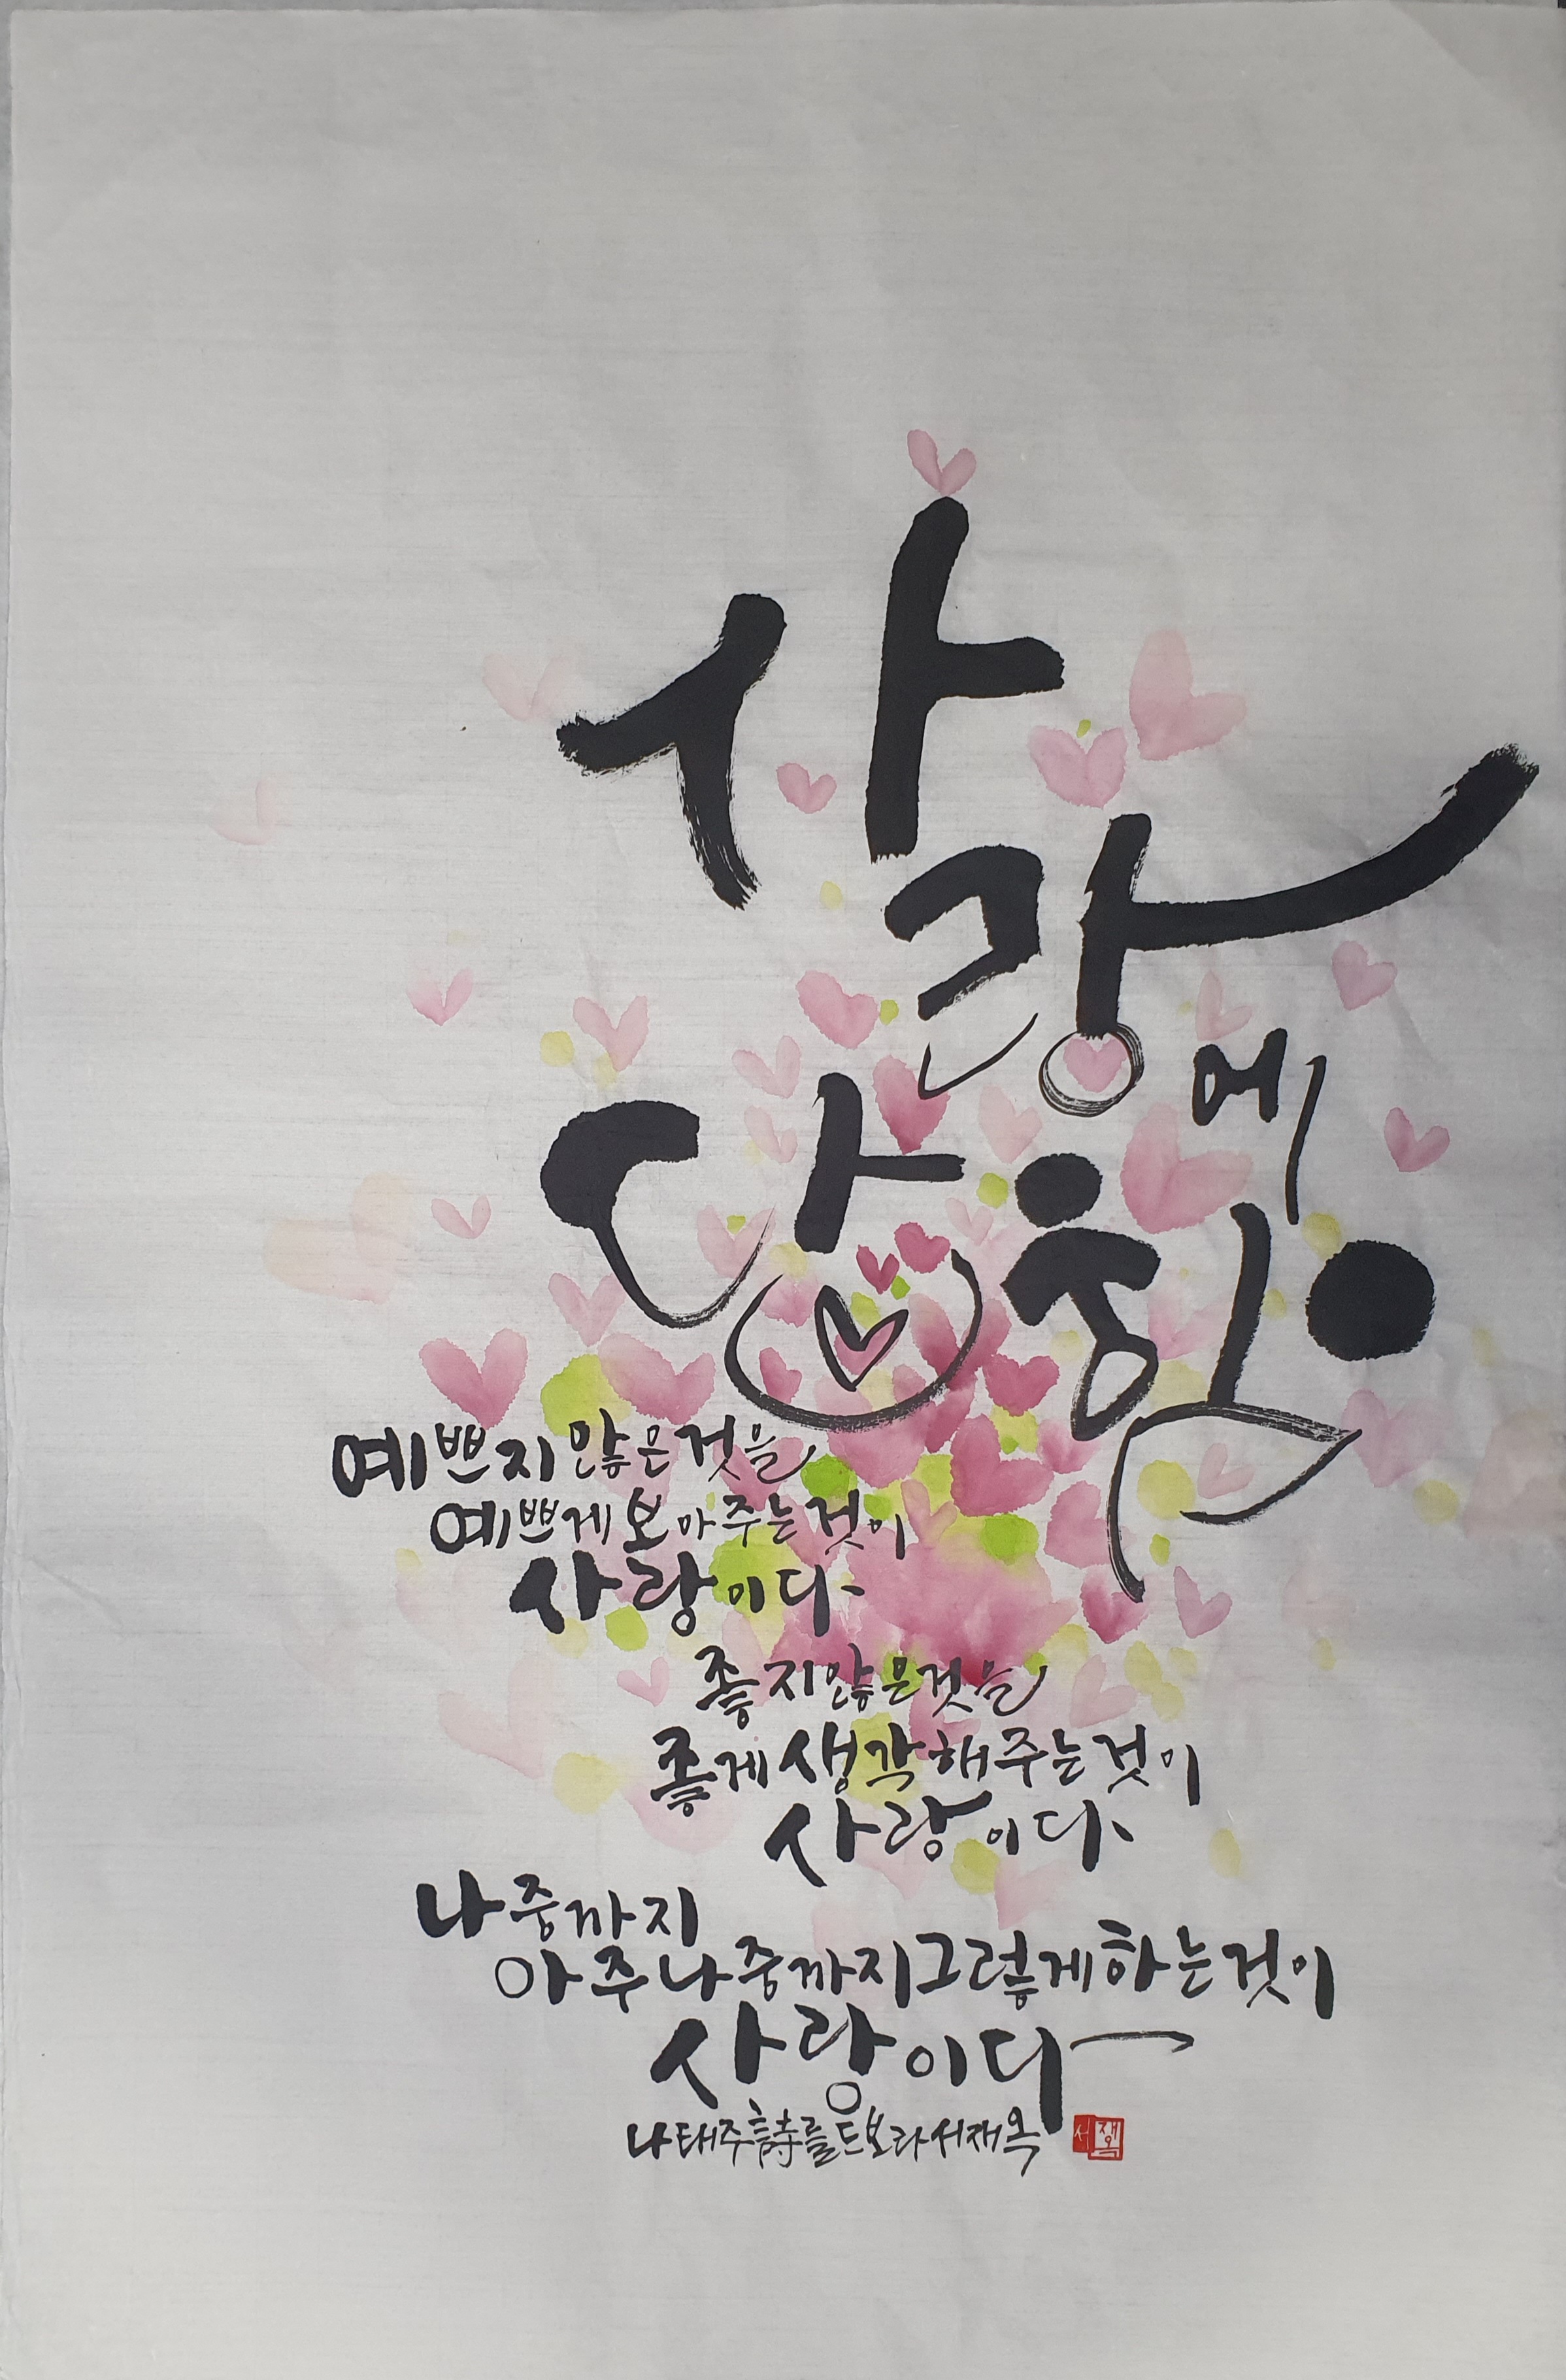 사랑에
답함
예쁘지 않은 것을
예쁘게 보아주는 것이
사랑이다.
좋지 않은 것을
좋게 생각해주는 것이
사랑이다.
나중까지
아주 나중까지 그렇게 하는 것이
사랑이다
나태주 詩를 드보라 서재옥
서재옥